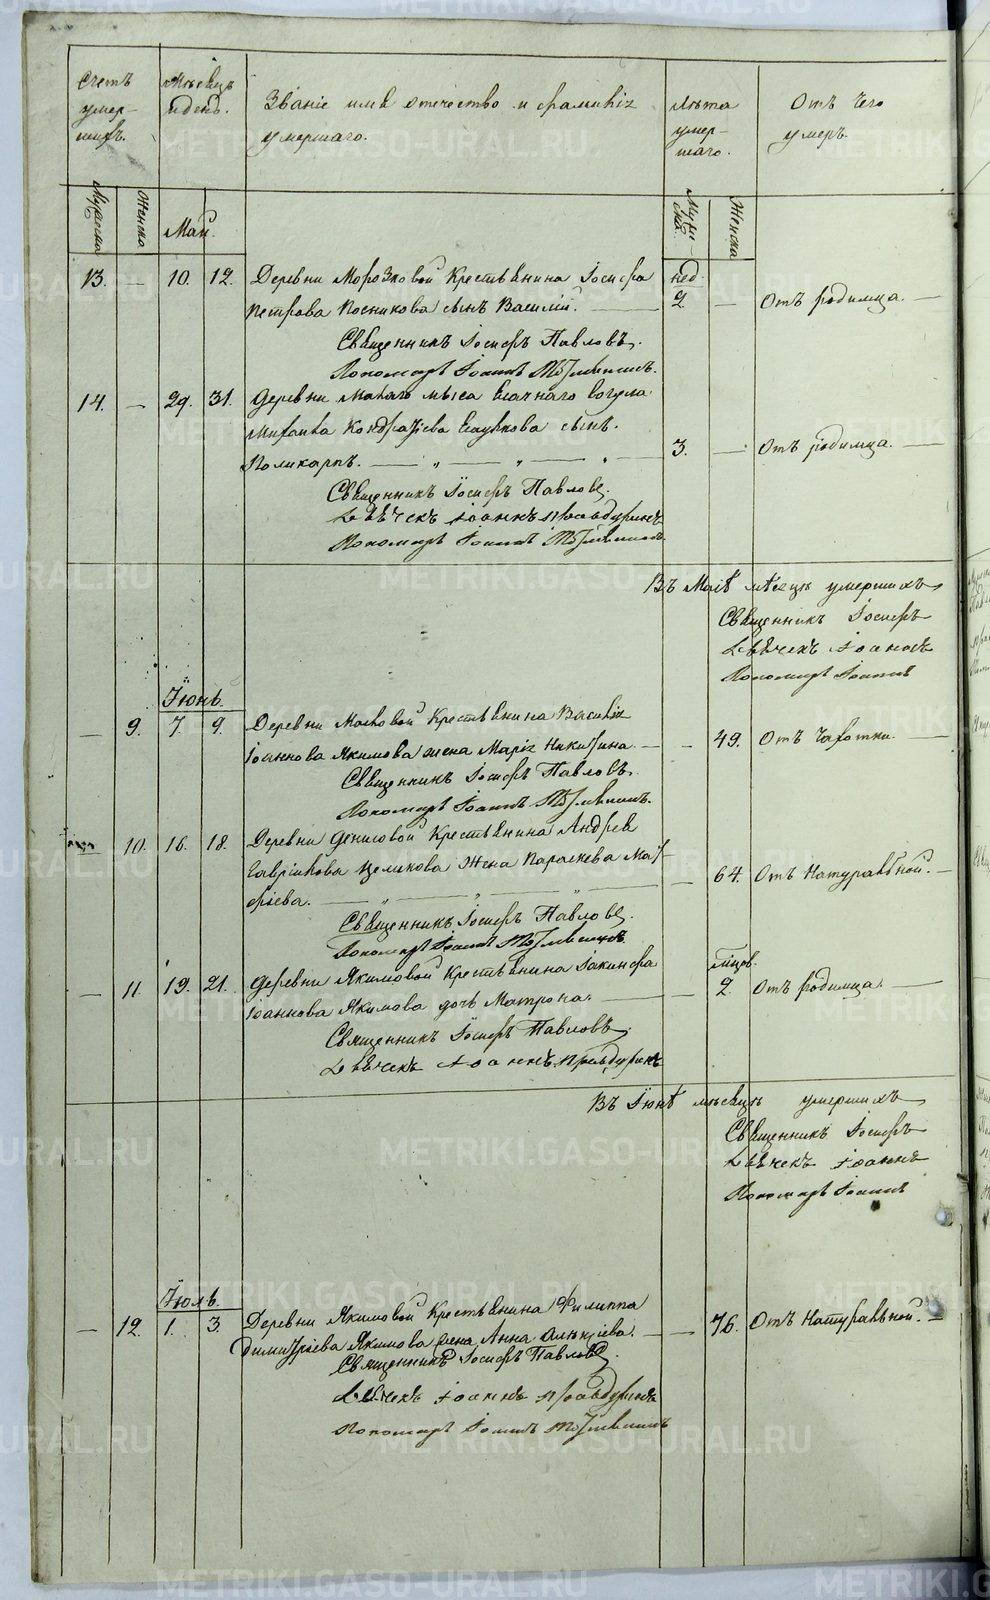 Счетъ умершихъ.
Мѣсецъ и день.
Званіе имя отечество и фамилія умершаго.
Лѣта умершаго.
Отъ чего умеръ.
Мужеска
Женска
Май.
Мужеска
Женска
13. — 10. 12. Деревни Морозковой Крестьянина Іосифа нед.
Петрова Посникова сынъ Василій. 2 — Отъ родимца.
Священникъ Іосифъ Павловъ.
Пономарь Іоаннъ
14. — 29. 31. Деревни Малаго мыса Ясачнаго вогула
Михаила Кондратьева сынъ.
Поликарпъ. 3. — Отъ родимца.
Священникъ Іосифъ Павловъ.
Дьячекъ Іоаннъ Правдуринъ
Пономарь Іоаннъ
Въ Маіѣ мѣсецѣ умершихъ
Священникъ Іосифъ
Дьячекъ Іоаннъ
Пономарь Іоаннъ
Іюнь.
— 9. 7. 9. Деревни Крестьянина Василія
Іоаннова Якимова жена Марія Никитина. — 49. Отъ чахотки.
Священникъ Іосифъ Павловъ.
Пономарь Іоаннъ
10. 16. 18. Деревни Денисовой Крестьянина Андрея
Гавріилова жена Параскева Мат-
фіева. — 64. Отъ Натуральной.
Священникъ Іосифъ Павловъ.
Пономарь Іоаннъ
— 11. 19. 21. Деревни Якимовой Крестьянина Іакинфа мѣсяцов.
Іоаннова Якимова дочь Матрона. — 2. Отъ родимца.
Священникъ Іосифъ Павловъ.
Дьячекъ Іоаннъ Правдуринъ
Въ Іюнѣ мѣсецѣ умершихъ
Священникъ Іосифъ
Дьячекъ Іоаннъ
Пономарь Іоаннъ
Іюль.
— 12. 1. 3. Деревни Якимовой Крестьянина Филиппа
Димитріева Якимова жена Анна Алексіева. — 76. Отъ Натуральной.
Священникъ Іосифъ Павловъ
Дьячекъ Іоаннъ Правдуринъ
Пономарь Іоаннъ
METRIKI.GASO-URAL.RU